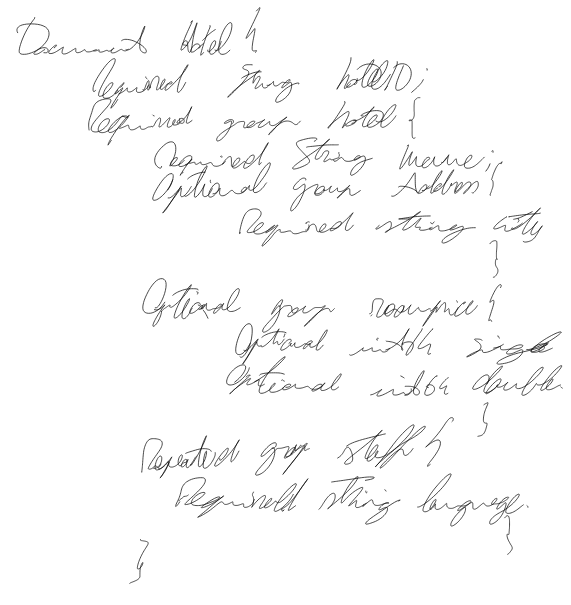 Document Hotel {
Required String hotelID;
Required group hotel {
Required String name;
Optional group Address {
Required string city
}
Optional group roomprice {
Optional int64 single
Optional int64 double
}
Repeated group staff {
Required string language.
}
}